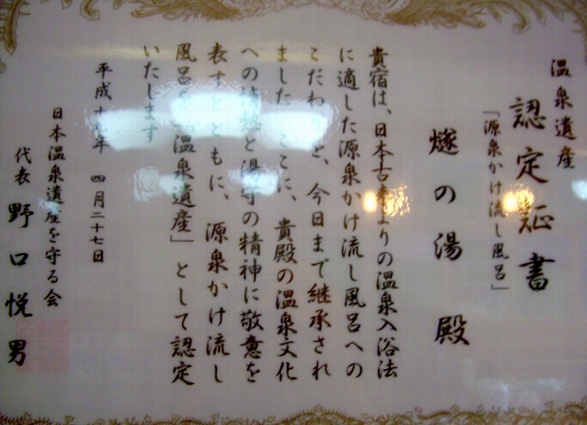 温泉遺産
認定証書
「源泉かけ流し風呂」
燧の湯 殿
貴宿は、日本古来よりの温泉入浴法
に適した源泉かけ流し風呂への
こだわ を、今日まで継承され
ました ここに、貴殿の温泉文化
への情熱と湯守の精神に敬意を
表すとともに、源泉かけ流し
風呂を「温泉遺産」として認定
いたします
平成 年 四月二十七日
日本温泉遺産を守る会
代表 野口悦男